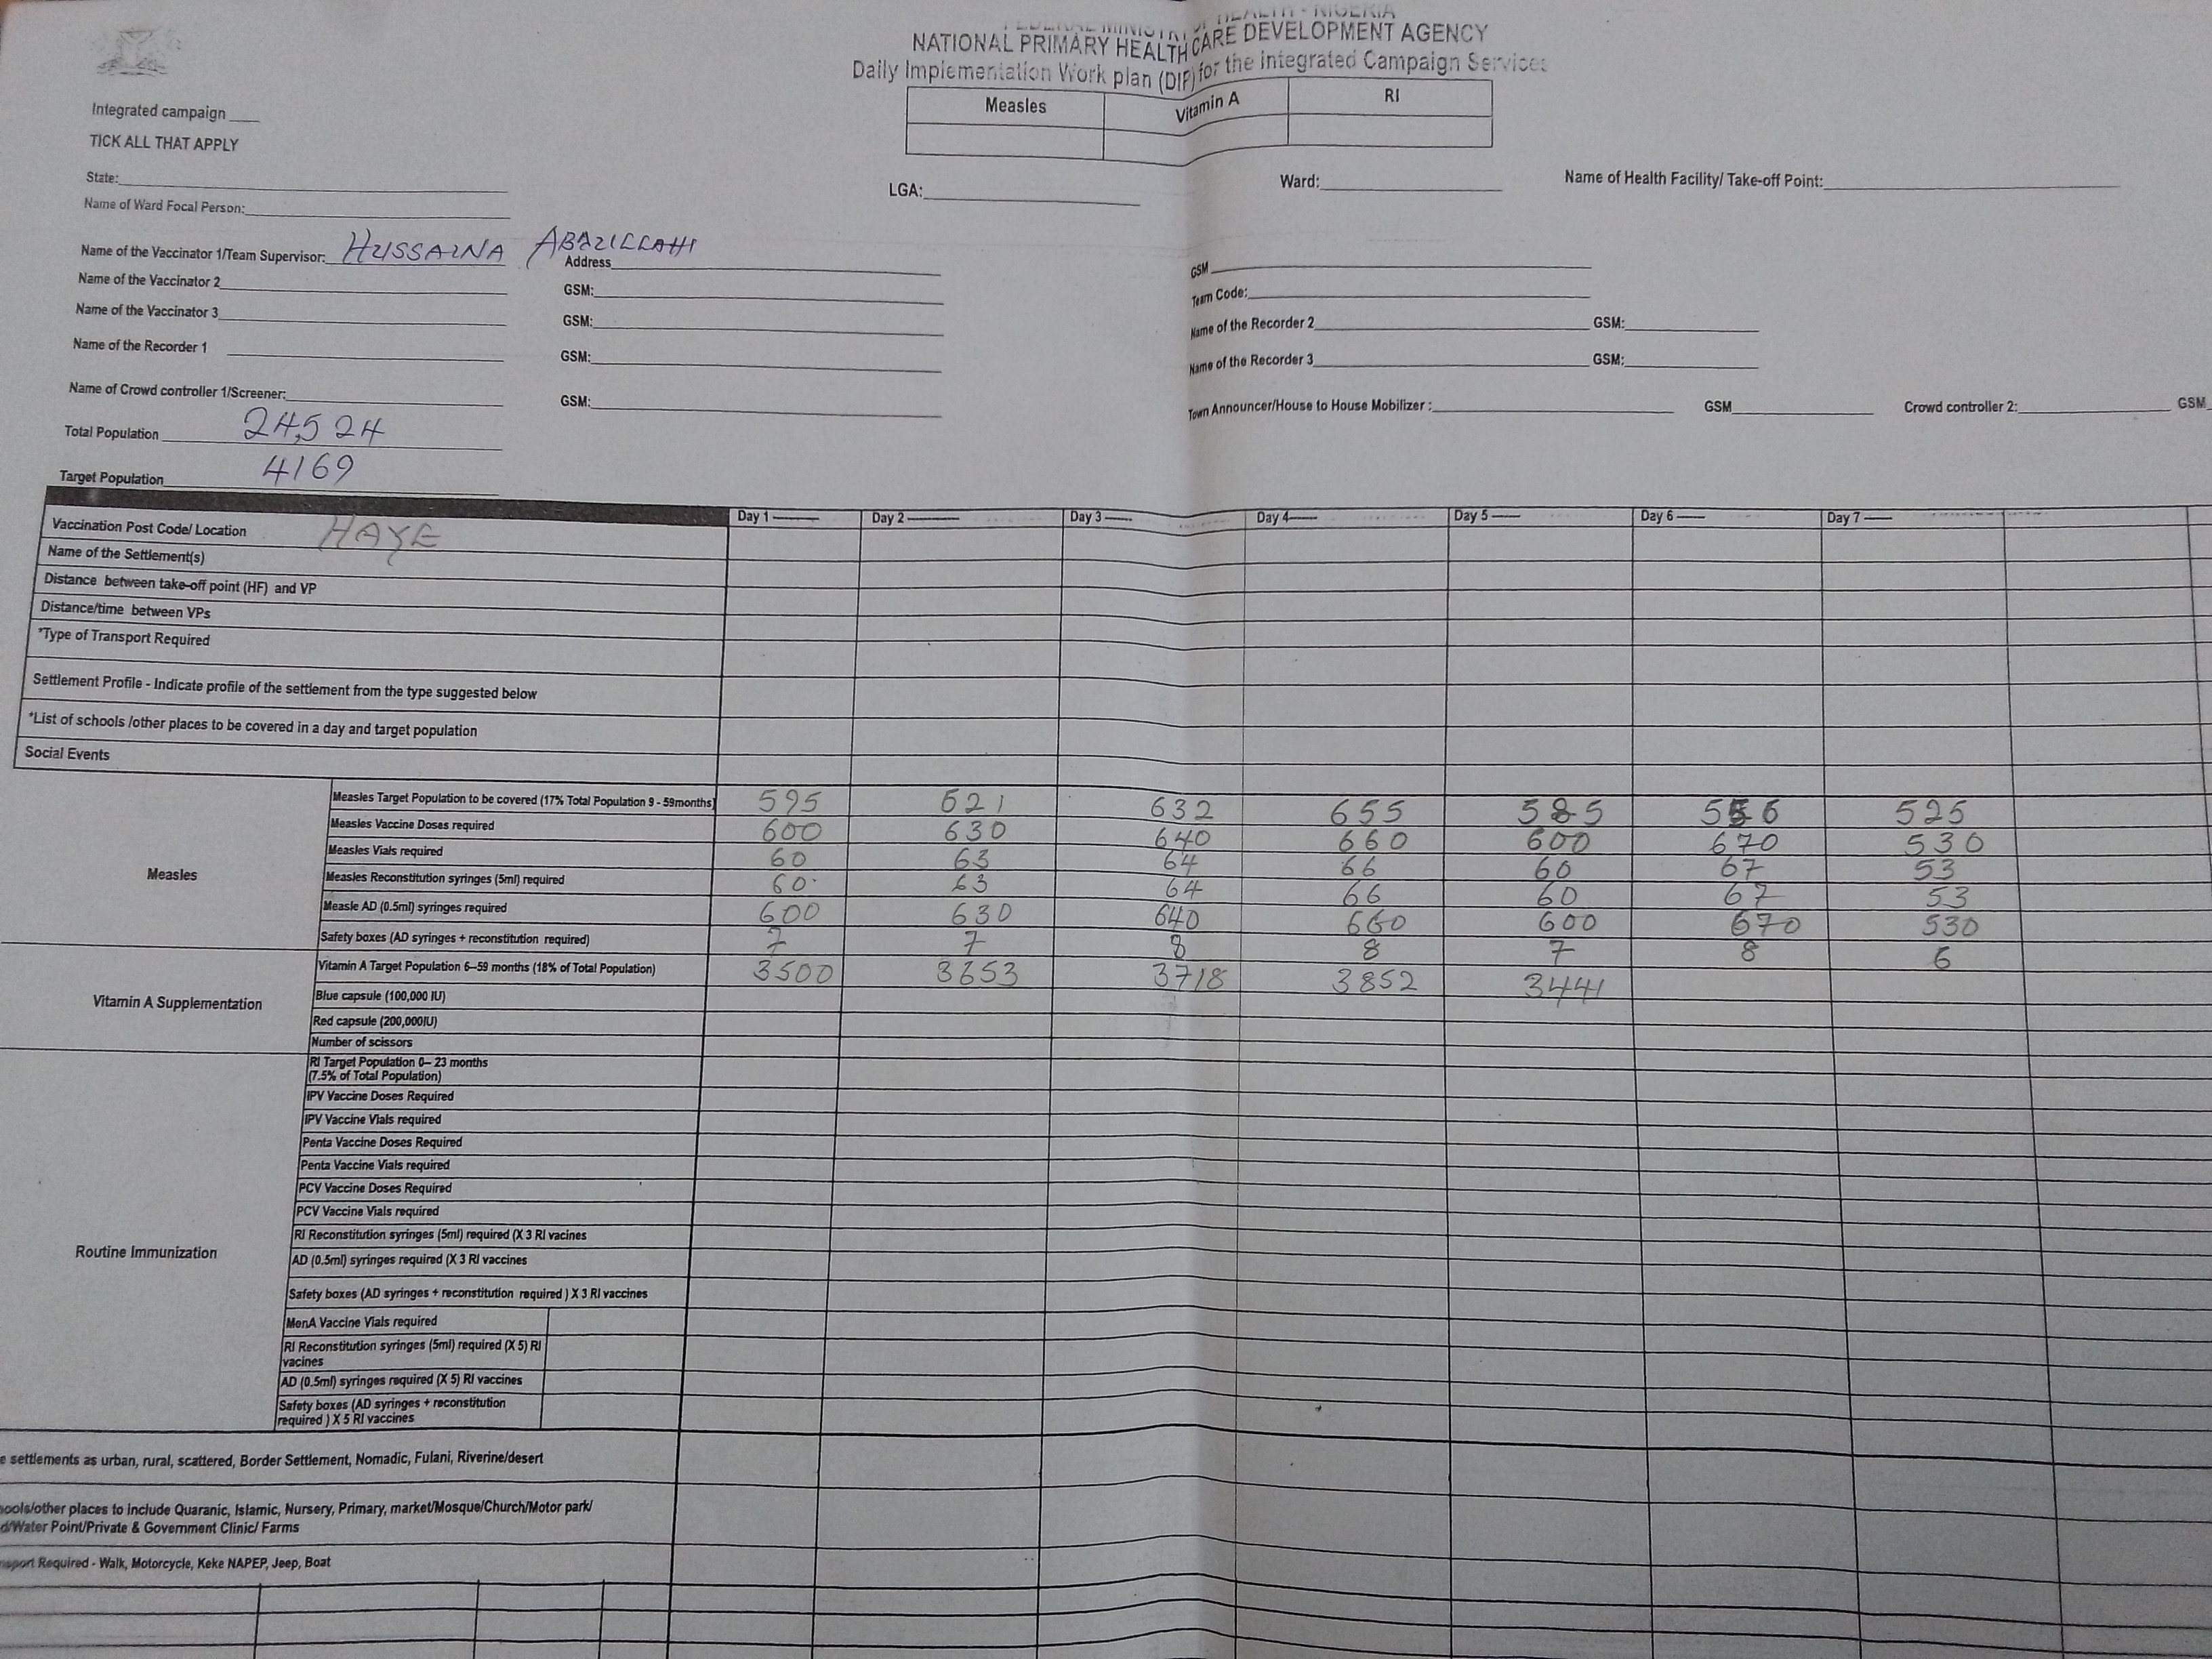 FEDERAL MINISTRY OF HEALTH - NIGERIA
NATIONAL PRIMARY HEALTH CARE DEVELOPMENT AGENCY
Daily Implementation Work plan (DIP) for the Integrated Campaign Services
Measles Vitamin A RI
Integrated campaign
TICK ALL THAT APPLY
State: LGA: Ward: Name of Health Facility/ Take-off Point:
Name of Ward Focal Person:
Name of the Vaccinator 1/Team Supervisor: HUSSAINA Address GSM
Name of the Vaccinator 2 GSM: Team Code:
Name of the Vaccinator 3 GSM: Name of the Recorder 2 GSM:
Name of the Recorder 1 GSM: Name of the Recorder 3 GSM:
Name of Crowd controller 1/Screener: GSM: Town Announcer/House to House Mobilizer : GSM Crowd controller 2: GSM
Total Population 24,524
Target Population 4169
Day 1 Day 2 Day 3 Day 4 Day 5 Day 6 Day 7
Vaccination Post Code/ Location HAYE
Name of the Settlement(s)
Distance between take-off point (HF) and VP
Distance/time between VPs
*Type of Transport Required
Settlement Profile - Indicate profile of the settlement from the type suggested below
*List of schools /other places to be covered in a day and target population
Social Events
Measles
Measles Target Population to be covered (17% Total Population 9 - 59months) 595 621 632 655 585 525
Measles Vaccine Doses required 600 630 640 660 600 670 530
Measles Vials required 60 63 64 66 60 67 53
Measles Reconstitution syringes (5ml) required 60 63 64 66 60 67 53
Measle AD (0.5ml) syringes required 600 630 640 660 600 670 530
Safety boxes (AD syringes + reconstitution required) 7 7 8 8 7 8 6
Vitamin A Supplementation
Vitamin A Target Population 6–59 months (18% of Total Population) 3500 3653 3718 3852 3441
Blue capsule (100,000 IU)
Red capsule (200,000IU)
Number of scissors
Routine Immunization
RI Target Population 0– 23 months
(7.5% of Total Population)
IPV Vaccine Doses Required
IPV Vaccine Vials required
Penta Vaccine Doses Required
Penta Vaccine Vials required
PCV Vaccine Doses Required
PCV Vaccine Vials required
RI Reconstitution syringes (5ml) required (X 3 RI vacines
AD (0.5ml) syringes required (X 3 RI vaccines
Safety boxes (AD syringes + reconstitution required ) X 3 RI vaccines
MenA Vaccine Vials required
RI Reconstitution syringes (5ml) required (X 5) RI
vacines
AD (0.5ml) syringes required (X 5) RI vaccines
Safety boxes (AD syringes + reconstitution
required ) X 5 RI vaccines
settlements as urban, rural, scattered, Border Settlement, Nomadic, Fulani, Riverine/desert
ools/other places to include Quaranic, Islamic, Nursery, Primary, market/Mosque/Church/Motor park/
d/Water Point/Private & Government Clinic/ Farms
nsport Required - Walk, Motorcycle, Keke NAPEP, Jeep, Boat